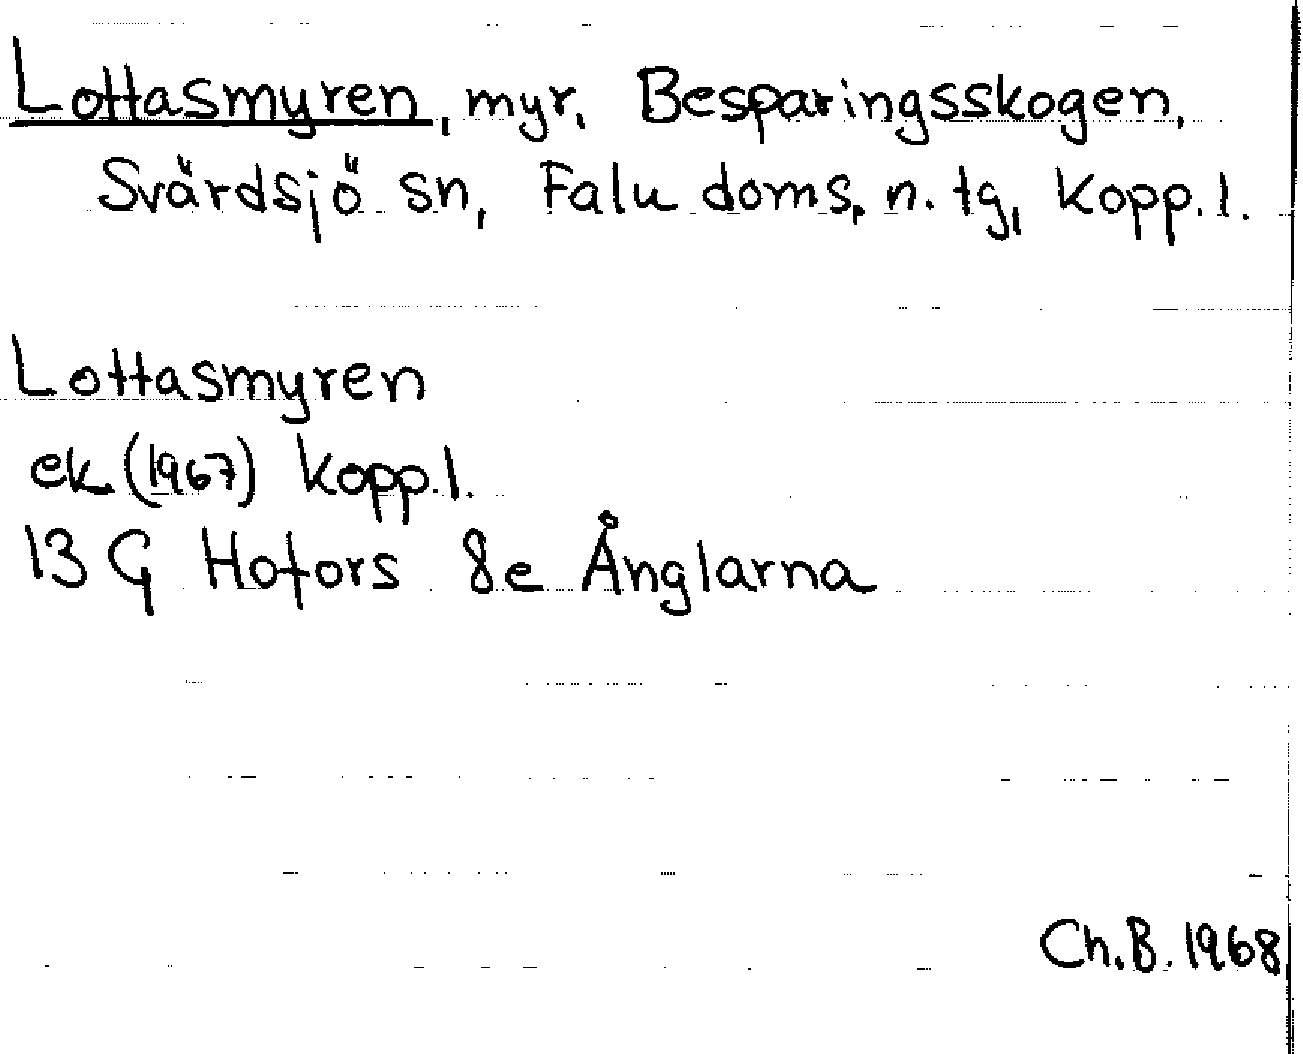 Lottasmyren, myr, Besparingsskogen,
Svärdsjö sn, Falu doms. n. tg, Kopp. l.
Lottasmyren
ek (1967) Kopp. l.
13 G Hofors 8e Ånglarna
Ch. B. 1968